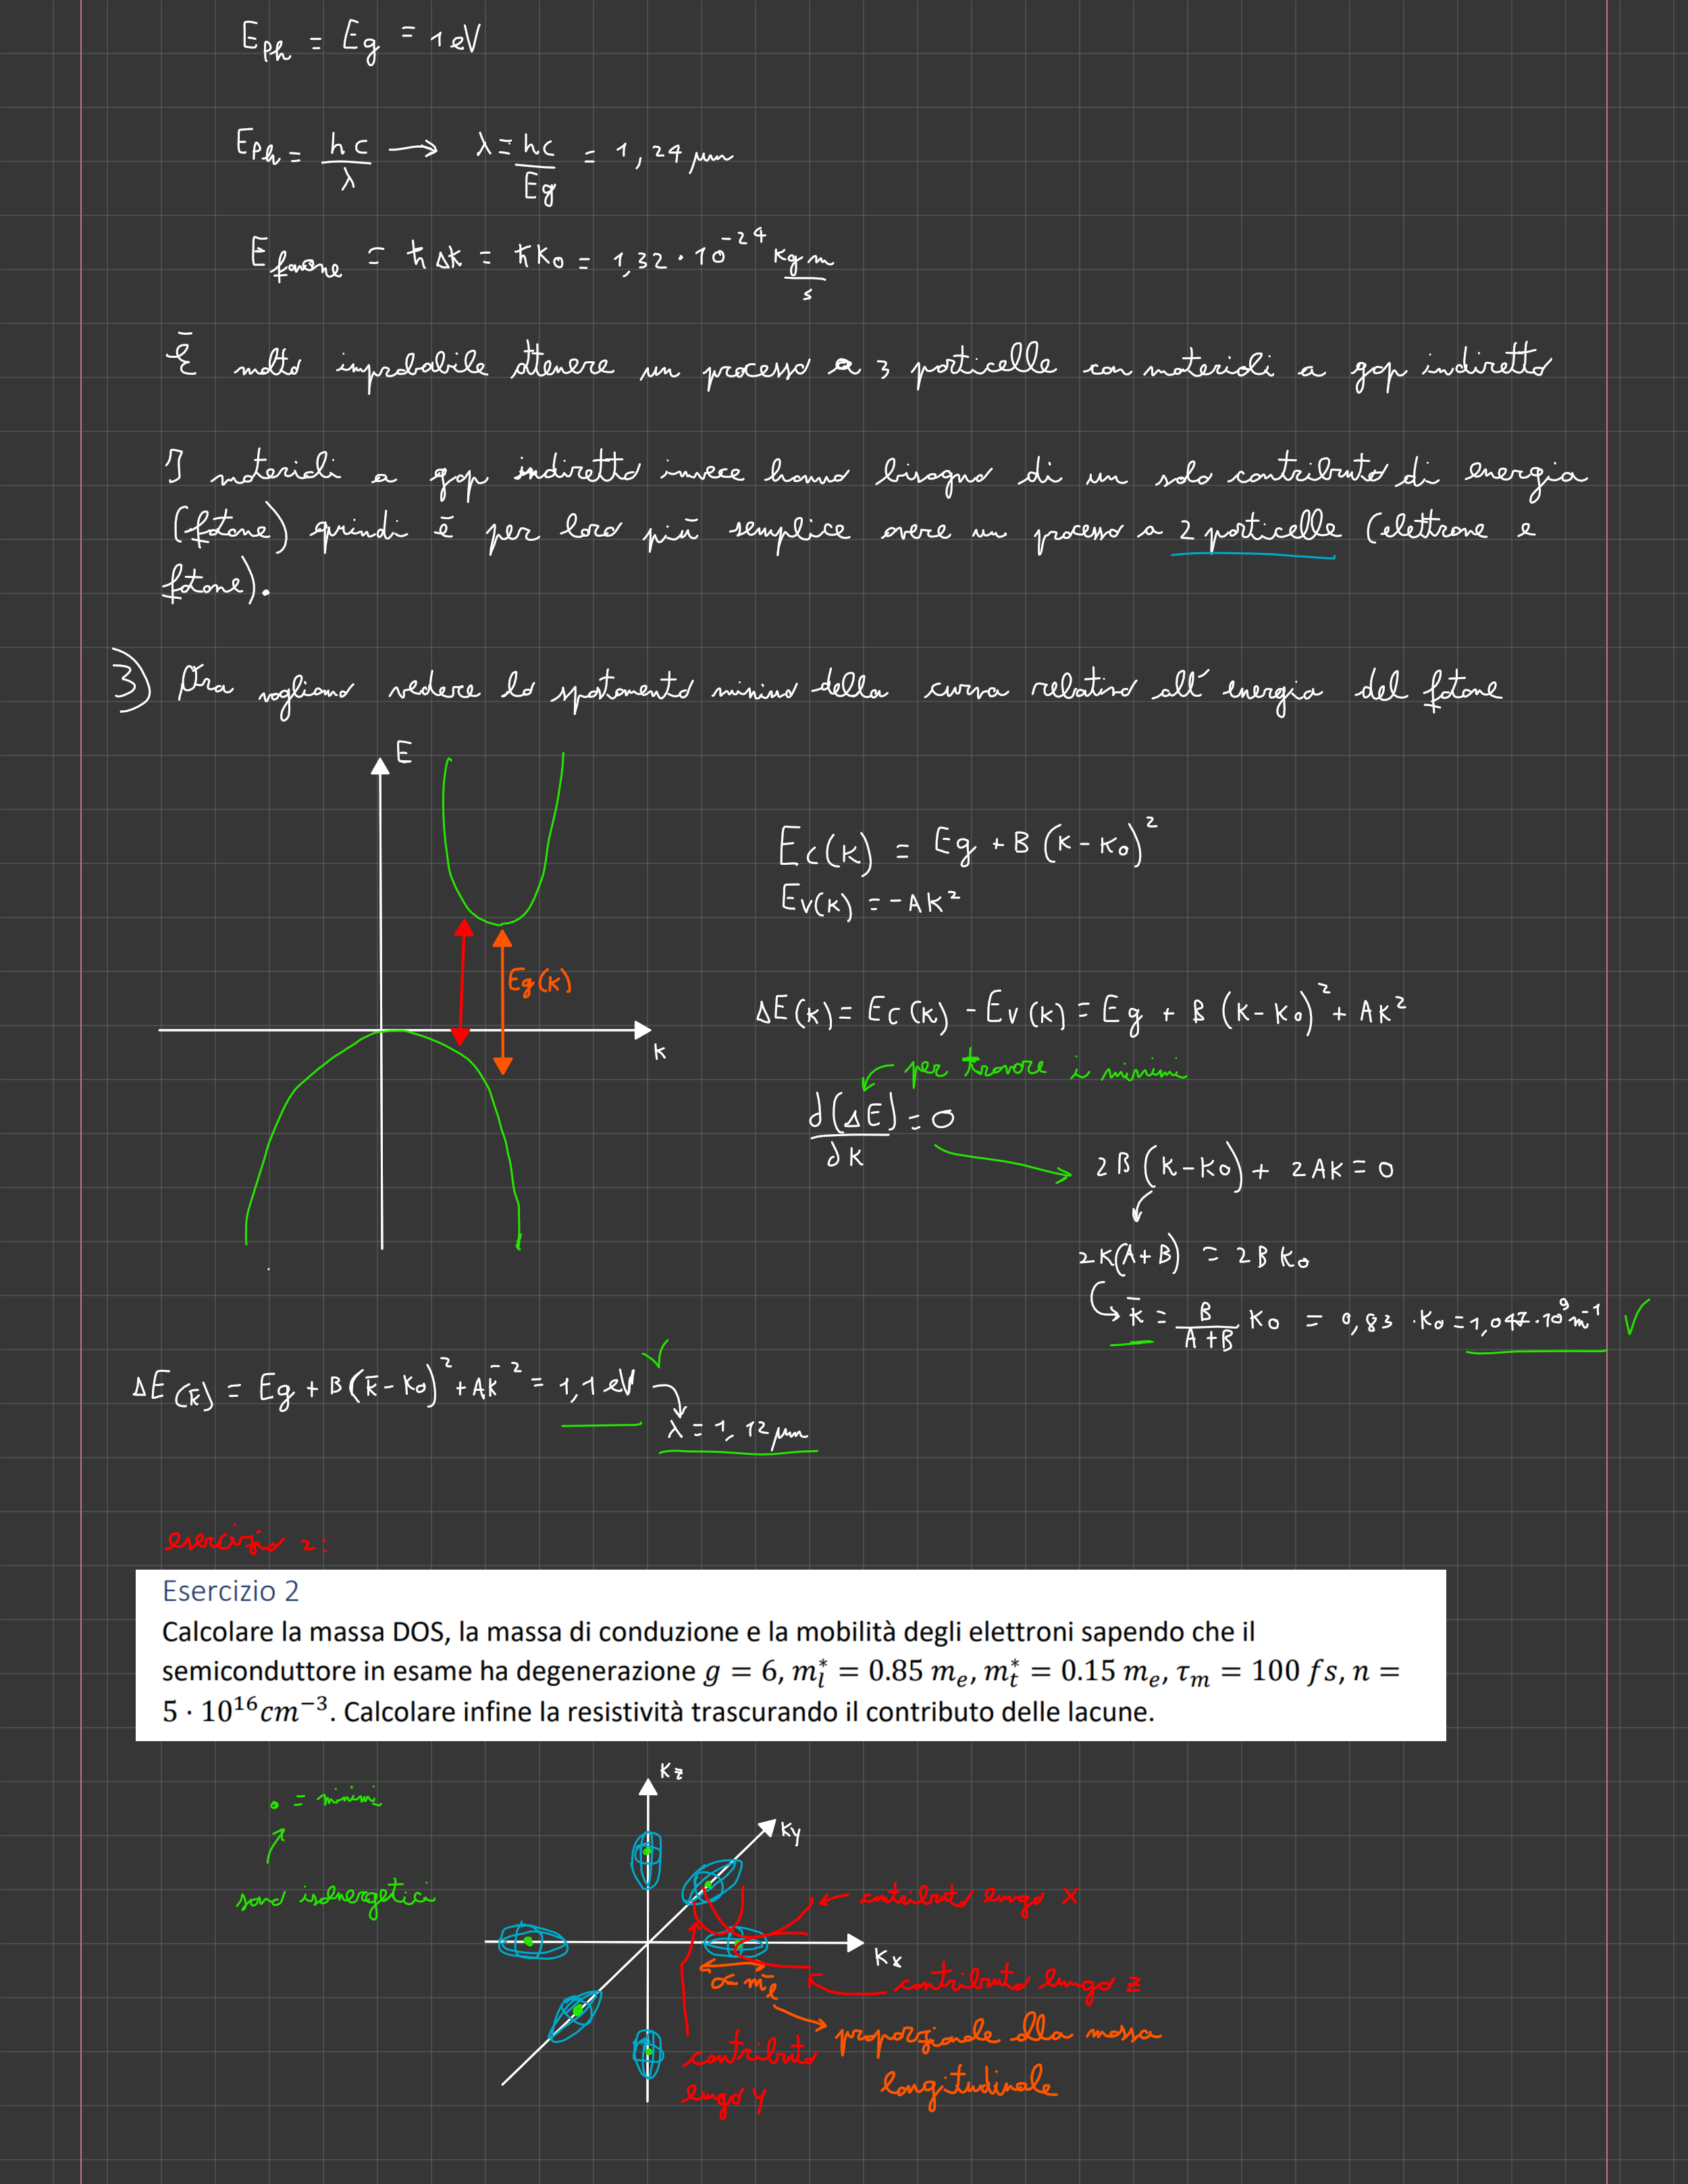 E_ph = Eg = 1 eV
E_ph = hc/λ → λ = hc/Eg = 1,24 μm
E_fonone = ħ Δk = ħ k₀ = 1,32 · 10⁻²⁴ kg m/s
È molto improbabile ottenere un processo a 3 particelle con materiali a gap indiretto
I materiali a gap indiretto invece hanno bisogno di un solo contributo di energia
(fotone) quindi è per loro più semplice avere un processo a 2 particelle (elettrone e
fotone).
3) Ora vogliamo vedere lo spostamento minimo della curva relativo all'energia del fotone
E
k
Eg(k)
Ec(k) = Eg + B (k - k₀)²
Ev(k) = -Ak²
ΔE(k) = Ec(k) - Ev(k) = Eg + B (k - k₀)² + Ak²
per trovare i minimi
d(ΔE)/dk = 0
2B (k - k₀) + 2Ak = 0
2k(A+B) = 2B k₀
k̄ = B/(A+B) k₀ = 0,83 · k₀ = 1,047 · 10⁹ m⁻¹ ✓
ΔE(k̄) = Eg + B(k̄ - k₀)² + Ak̄² = 1,1 eV ✓
λ = 1,12 μm
esercizio 2:
Esercizio 2
Calcolare la massa DOS, la massa di conduzione e la mobilità degli elettroni sapendo che il
semiconduttore in esame ha degenerazione g = 6, m*_l = 0.85 m_e, m*_t = 0.15 m_e, τ_m = 100 fs, n =
5 · 10¹⁶cm⁻³. Calcolare infine la resistività trascurando il contributo delle lacune.
kz
ky
kx
• = minimi
sono isoenergetici
contributo lungo x
contributo lungo z
∝ m_l
proporzionale alla massa
longitudinale
contributo
lungo y